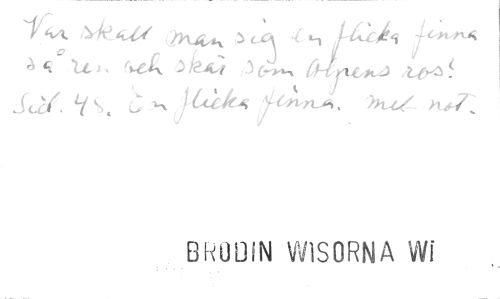 Var skall man sig en flicka finna
så ren och skär som Alpens ros!
Sid. 45. En flicka finna. mel-not.
BRODIN WISORNA Wi